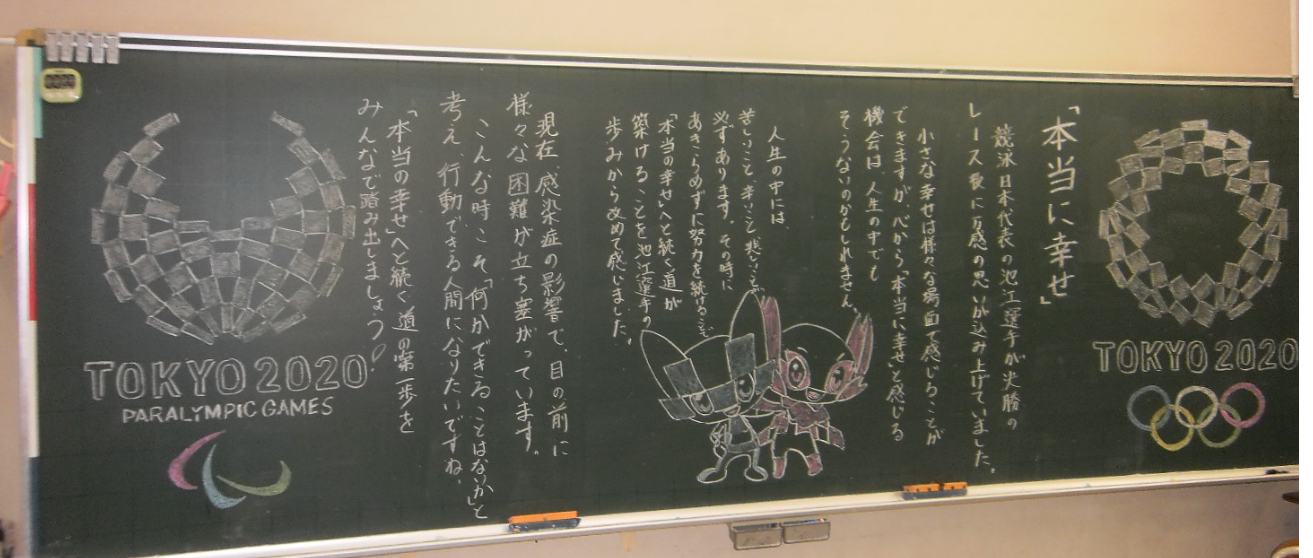 「本当に幸せ」
競泳日本代表の池江選手が決勝の
レース後に万感の思いが込み上げていました。
小さな幸せは様々な場面で感じることが
できますが、心から「本当に幸せ」と感じる
機会は人生の中でも
そうないのかもしれません。
人生の中には、
苦しいこと、辛いこと、悲しいことが
必ずあります。その時に
あきらめずに努力を続けることで
「本当の幸せ」へと続く道が
築けることを池江選手の
歩みからあらためて感じました。
現在、感染症の影響で、目の前に
様々な困難が立ち塞がっています。
こんな時こそ「何かできることはないか」と
考え、行動できる人間になりたいですね。
「本当の幸せ」へと続く道の第一歩を
みんなで踏み出しましょう!
TOKYO 2020
TOKYO 2020
PARALYMPIC GAMES